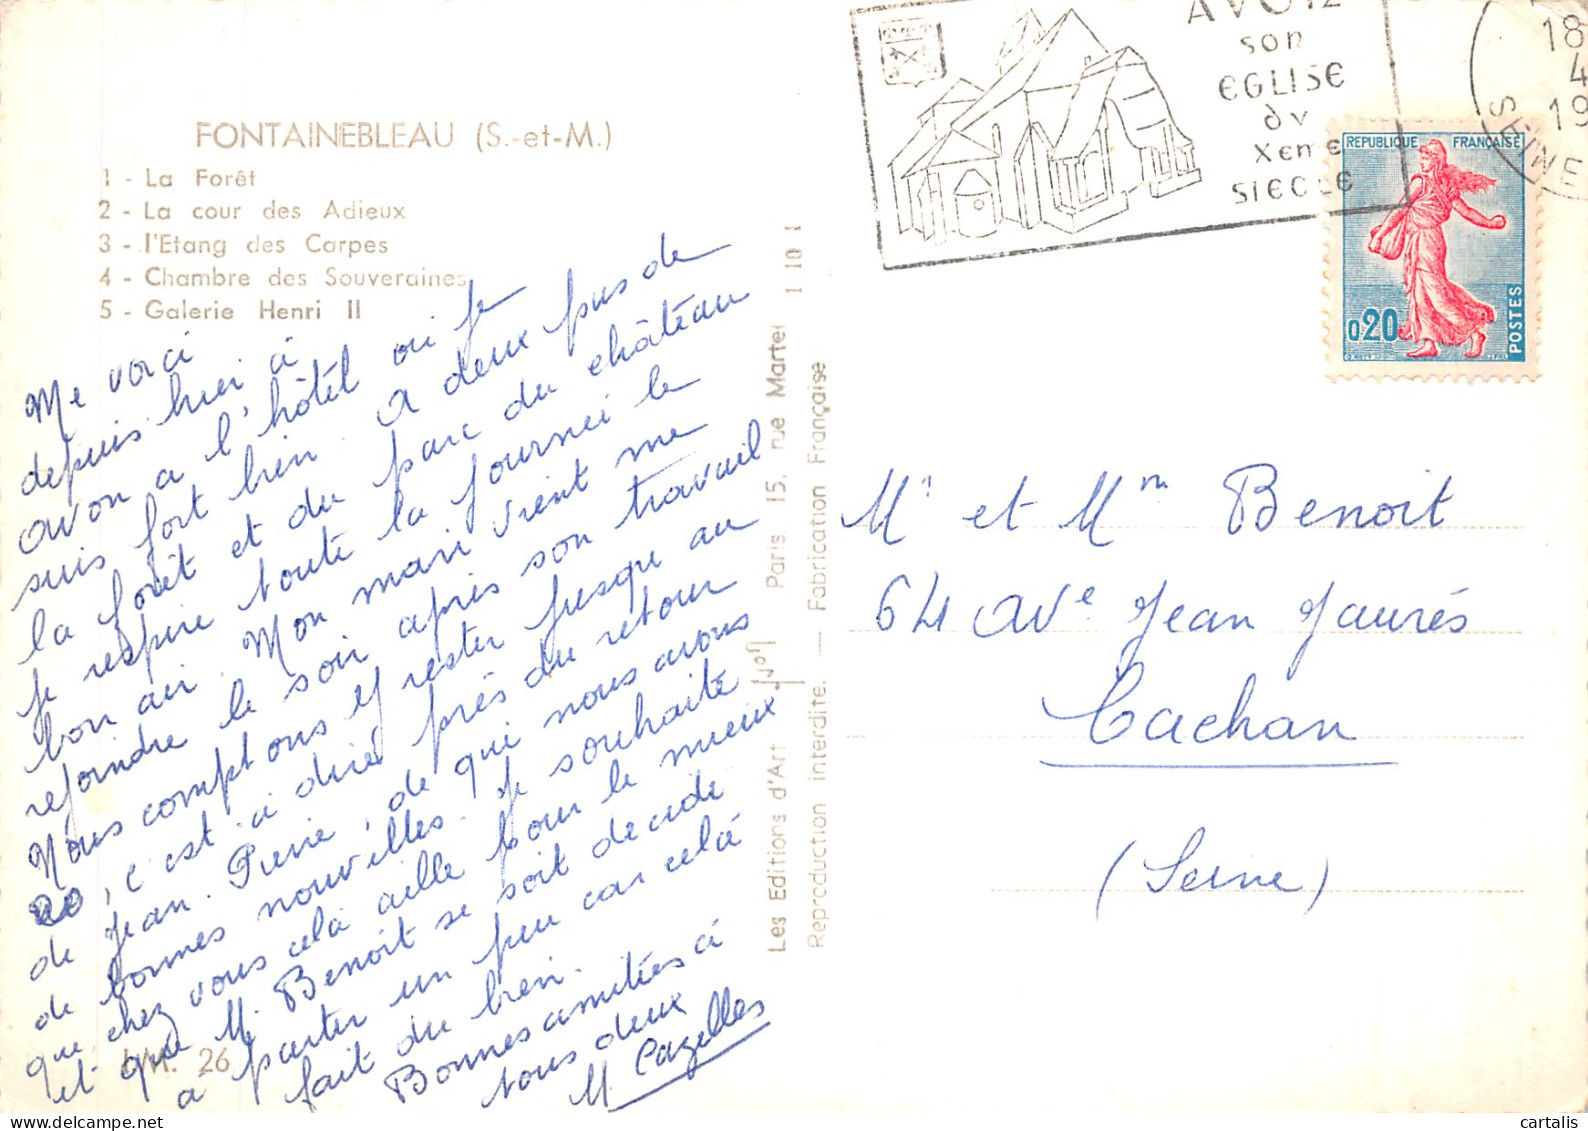 FONTAINEBLEAU (S.-et-M.)
1 - La Forêt
2 - La cour des Adieux
3 - l'Etang des Carpes
4 - Chambre des Souveraines
5 - Galerie Henri II
Me voici
depuis hier à
avon a l'hôtel ou je
suis fort bien. A deux pas de
la forêt et du parc du château
je respire toute la journei le
bon air. Mon mari vient me
rejoindre le soir après son travail
Nous comptons y rester jusqu au
20, c'est à dire près du retour
de Jean. Pierre, de qui nous avons
de bonnes nouvelles. Je souhaite
que chez vous cela aille pour le mieux
et que M. Benoit se soit decidé
à partir un peu car celà
fait du bien.
Bonnes amitiées à
tous deux
M Cazelles
M. 26
Les Editions d'Art Yvon Paris 15, rue Martel 1 10 1
Reproduction interdite. — Fabrication Française
AVON
son
EGLISE
du
Xeme
SIECLE
18
4
19
SEINE
REPUBLIQUE FRANÇAISE
0,20
POSTES
Mr et Mm Benoit
64 Ave Jean Jaurés
Cachan
(Seine)
cartalis